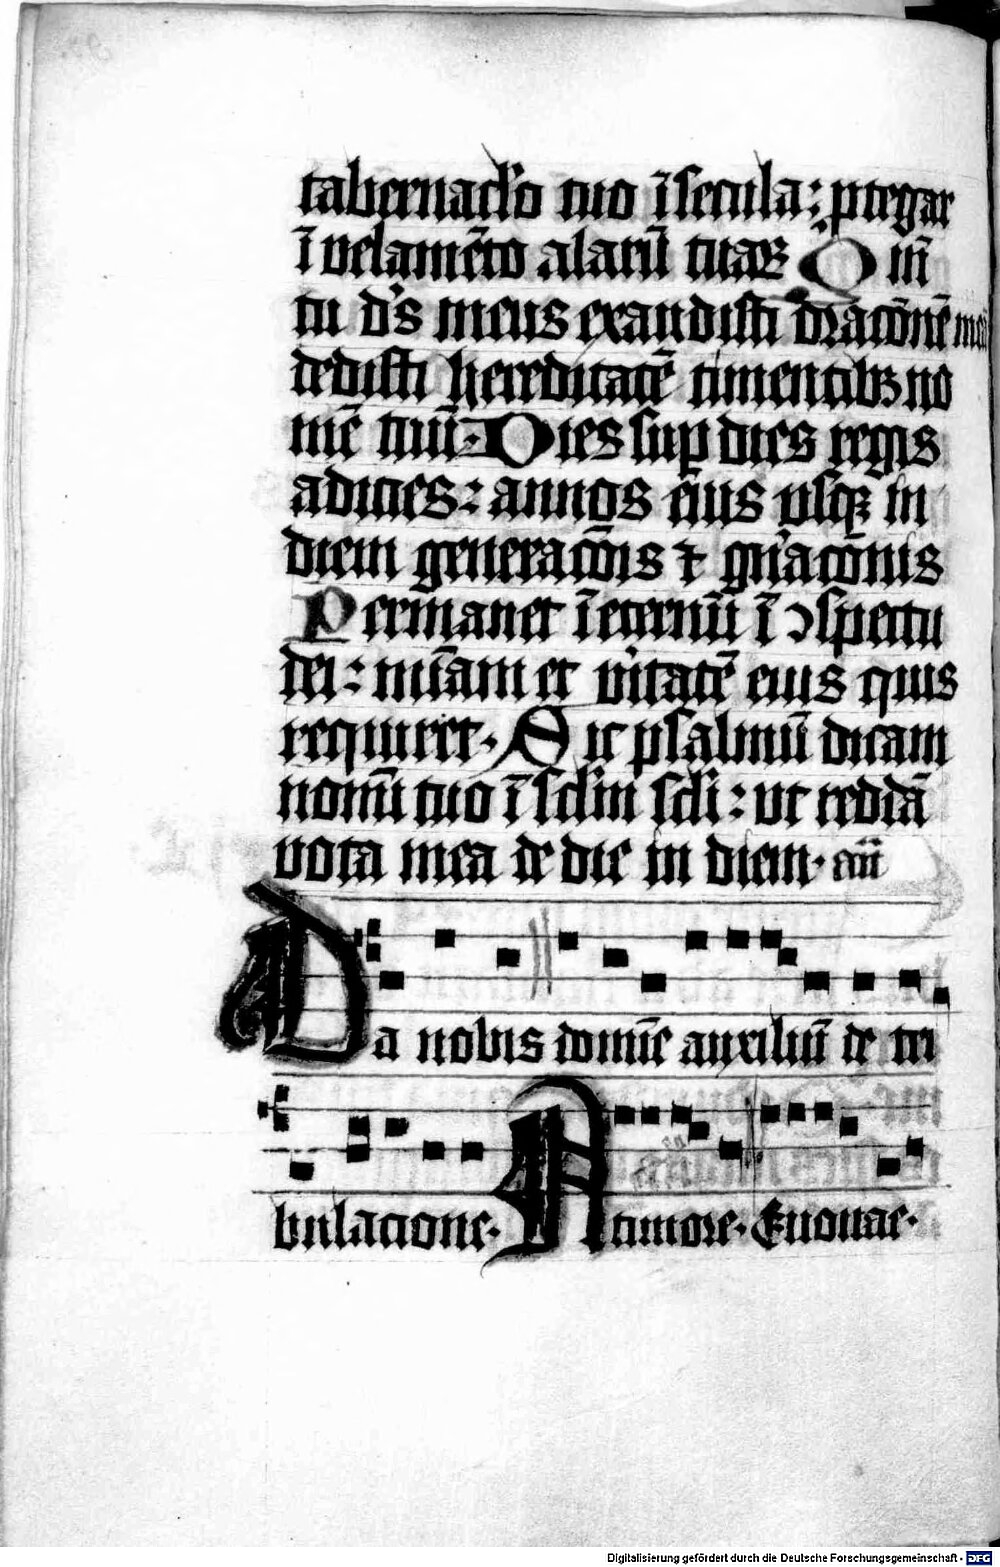 tabernac̄lo tuo ī secula: ꝓtegar
ī velamēto alarū tuaꝝ Q m̄
tu d̄s meus exaudisti oraconē meā
dedisti hereditatē timentibꝫ no
mē tuū. Dies suꝑ dies regis
adicies: annos eius vsqꝫ in
diem generacōis ⁊ gn̄acōnis
Permanet ī eternū ī ꝯspectu
dei: mīam et v̄itatē eius quis
requiret. Sic psalmū dicam
nomī tuo ī sc̄lm sc̄li: ut reddā
vota mea de die in diem. an̄
Da nobis domīe auxiliū de tri
bulacione. A timore. Euouae.
Digitalisierung gefördert durch die Deutsche Forschungsgemeinschaft - DFG